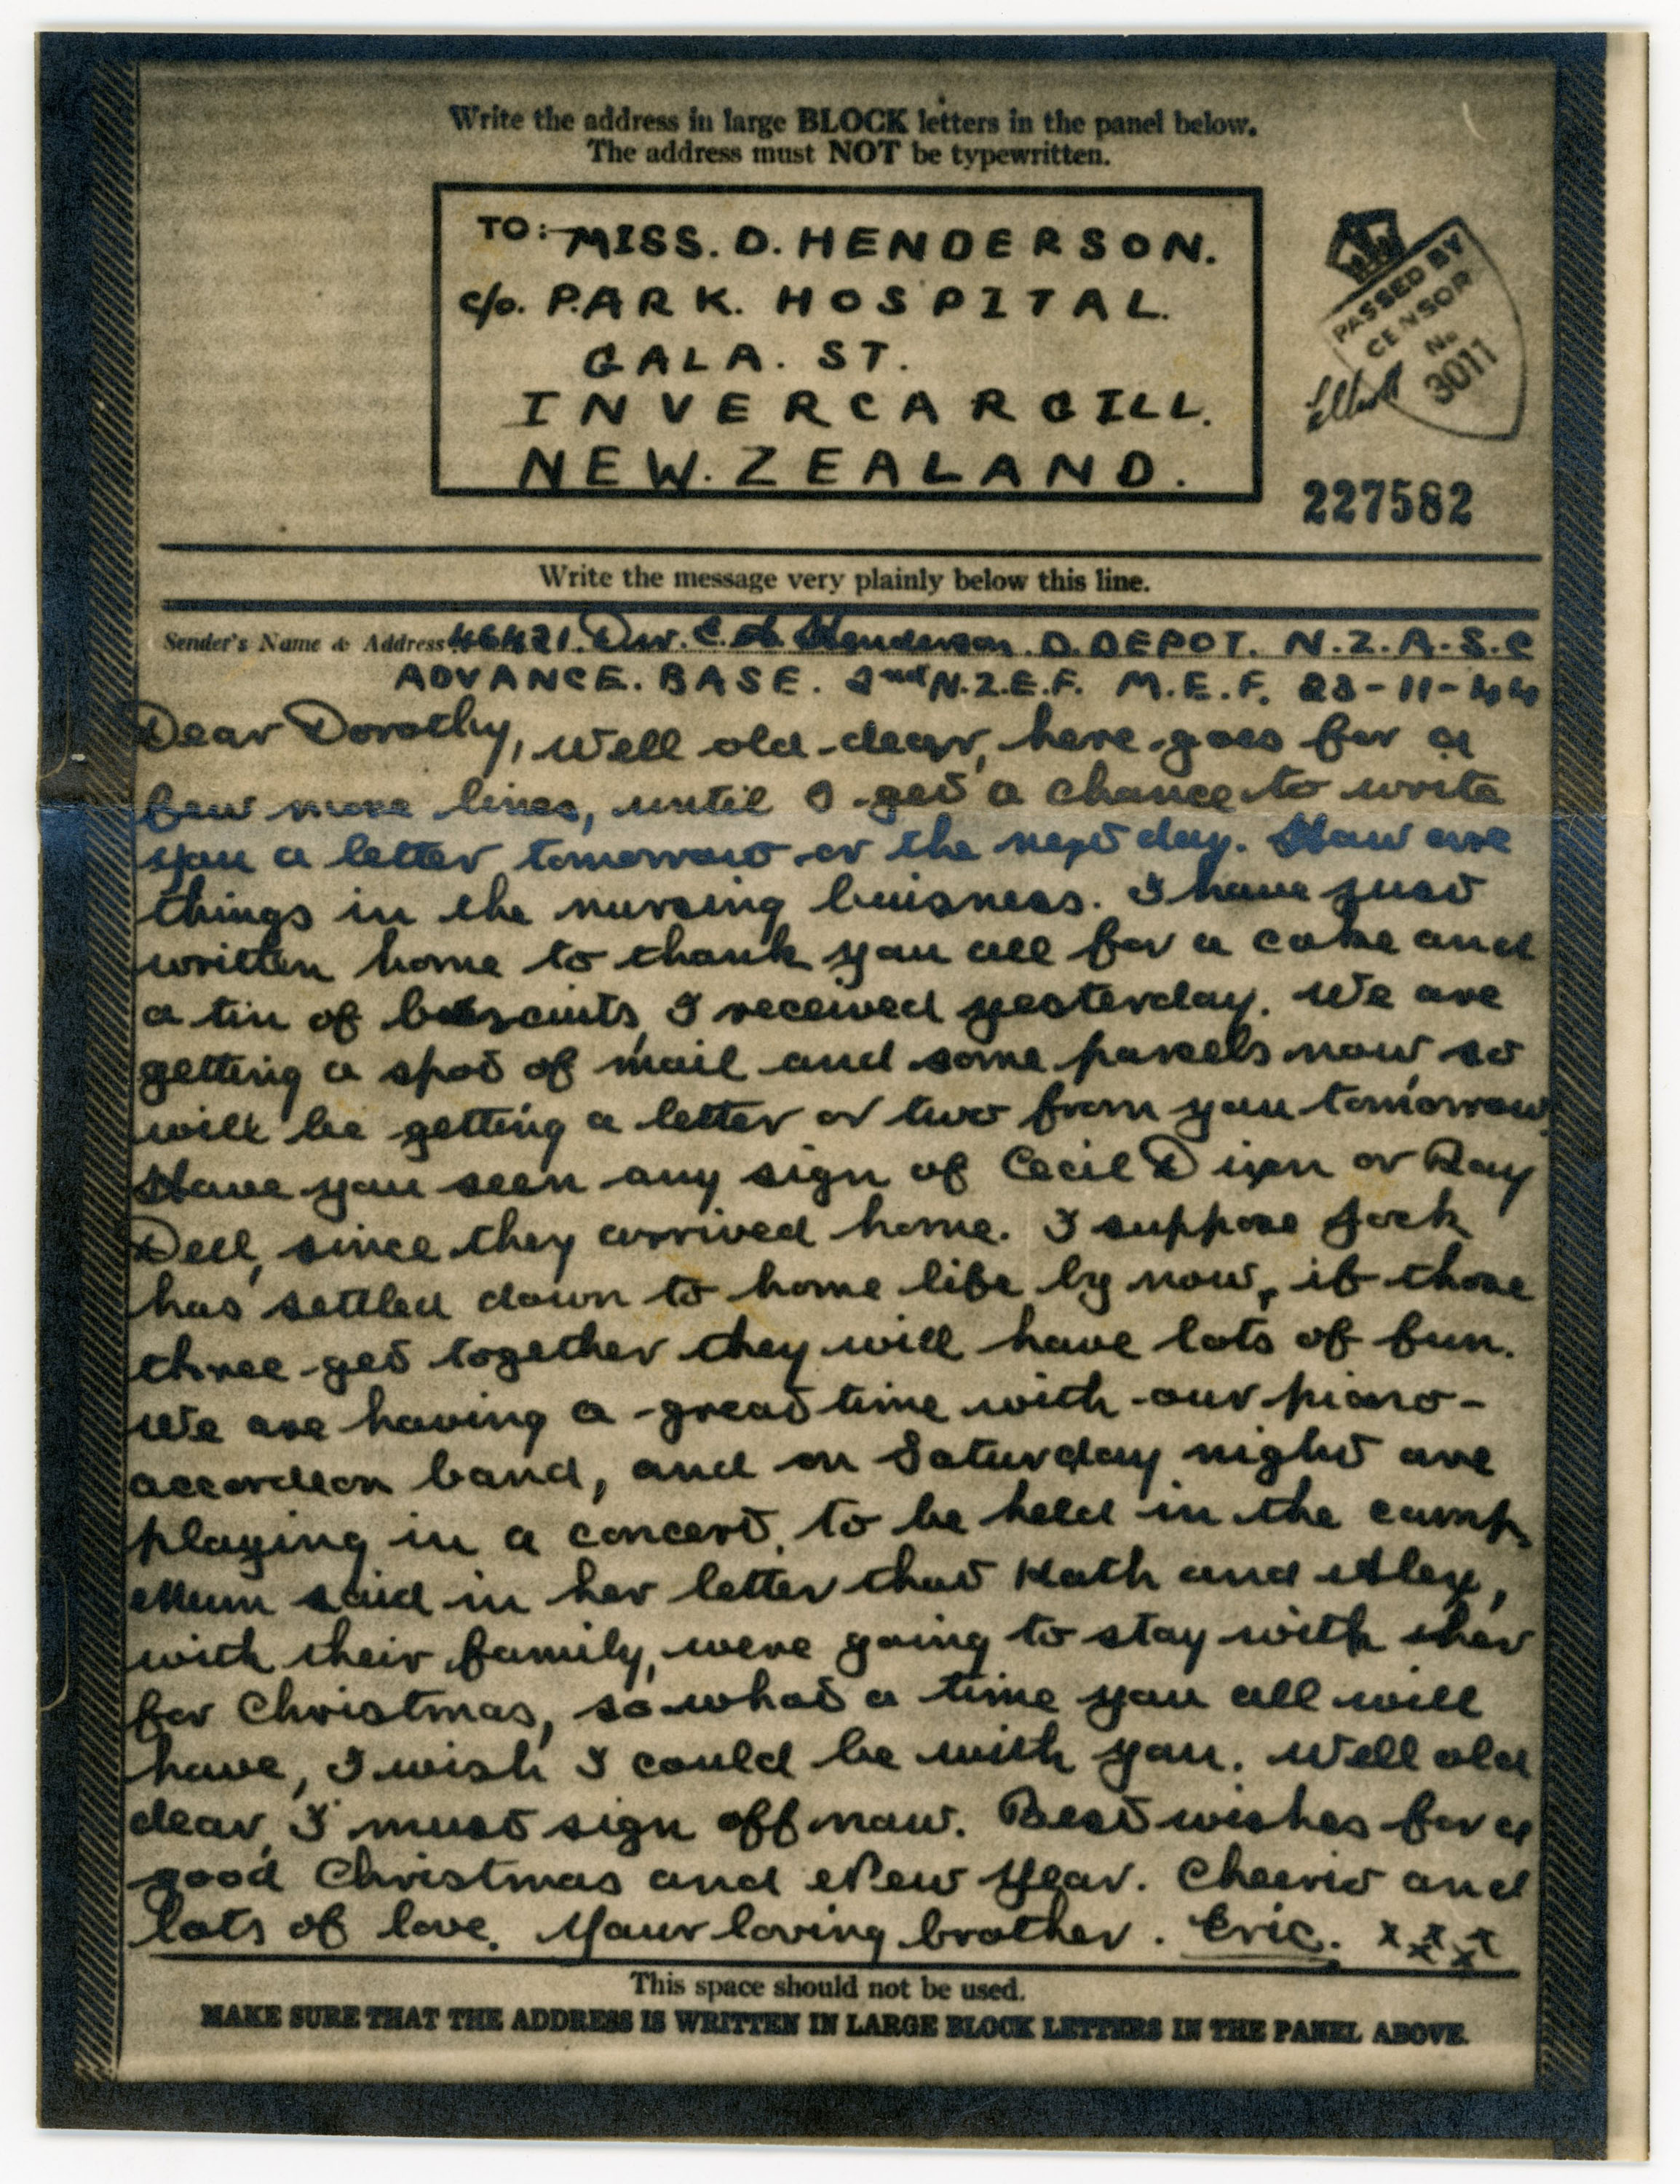 Write the address in large BLOCK letters in the panel below.
The address must NOT be typewritten.
TO: MISS. D. HENDERSON.
c/o. PARK. HOSPITAL.
GALA. ST.
INVERCARGILL.
NEW. ZEALAND.
PASSED BY
CENSOR
No
3011
227582
Write the message very plainly below this line.
Sender's Name & Address 46421. Dvr. Henderson. D. DEPOT. N.Z.A.S.C
ADVANCE. BASE. 2nd N.Z.E.F. M.E.F. 23-11-44
Dear Dorothy, Well old dear, here goes for a
few more lines, until I get a chance to write
you a letter tomorrow or the next day. How are
things in the nursing buisness. I have just
written home to thank you all for a cake and
a tin of bisscuits, I received yesterday. We are
getting a spot of mail and some parcels now so
will be getting a letter or two from you tomorrow.
Have you seen any sign of Cecil Dixon or Ray
Dell, since they arrived home. I suppose Jack
has settled down to home life by now, if those
three get together they will have lots of fun.
We are having a great time with our piano-
accordeon band, and on Saturday night are
playing in a concert, to be held in the camp.
Mum said in her letter that Kath and Alex,
with their family, were going to stay with her
for Christmas, so what a time you all will
have, I wish I could be with you. Well old
dear, I must sign off now. Best wishes for a
good Christmas and New Year. Cheerio and
lots of love. Your loving brother. Eric. xxxx
This space should not be used.
MAKE SURE THAT THE ADDRESS IS WRITTEN IN LARGE BLOCK LETTERS IN THE PANEL ABOVE.